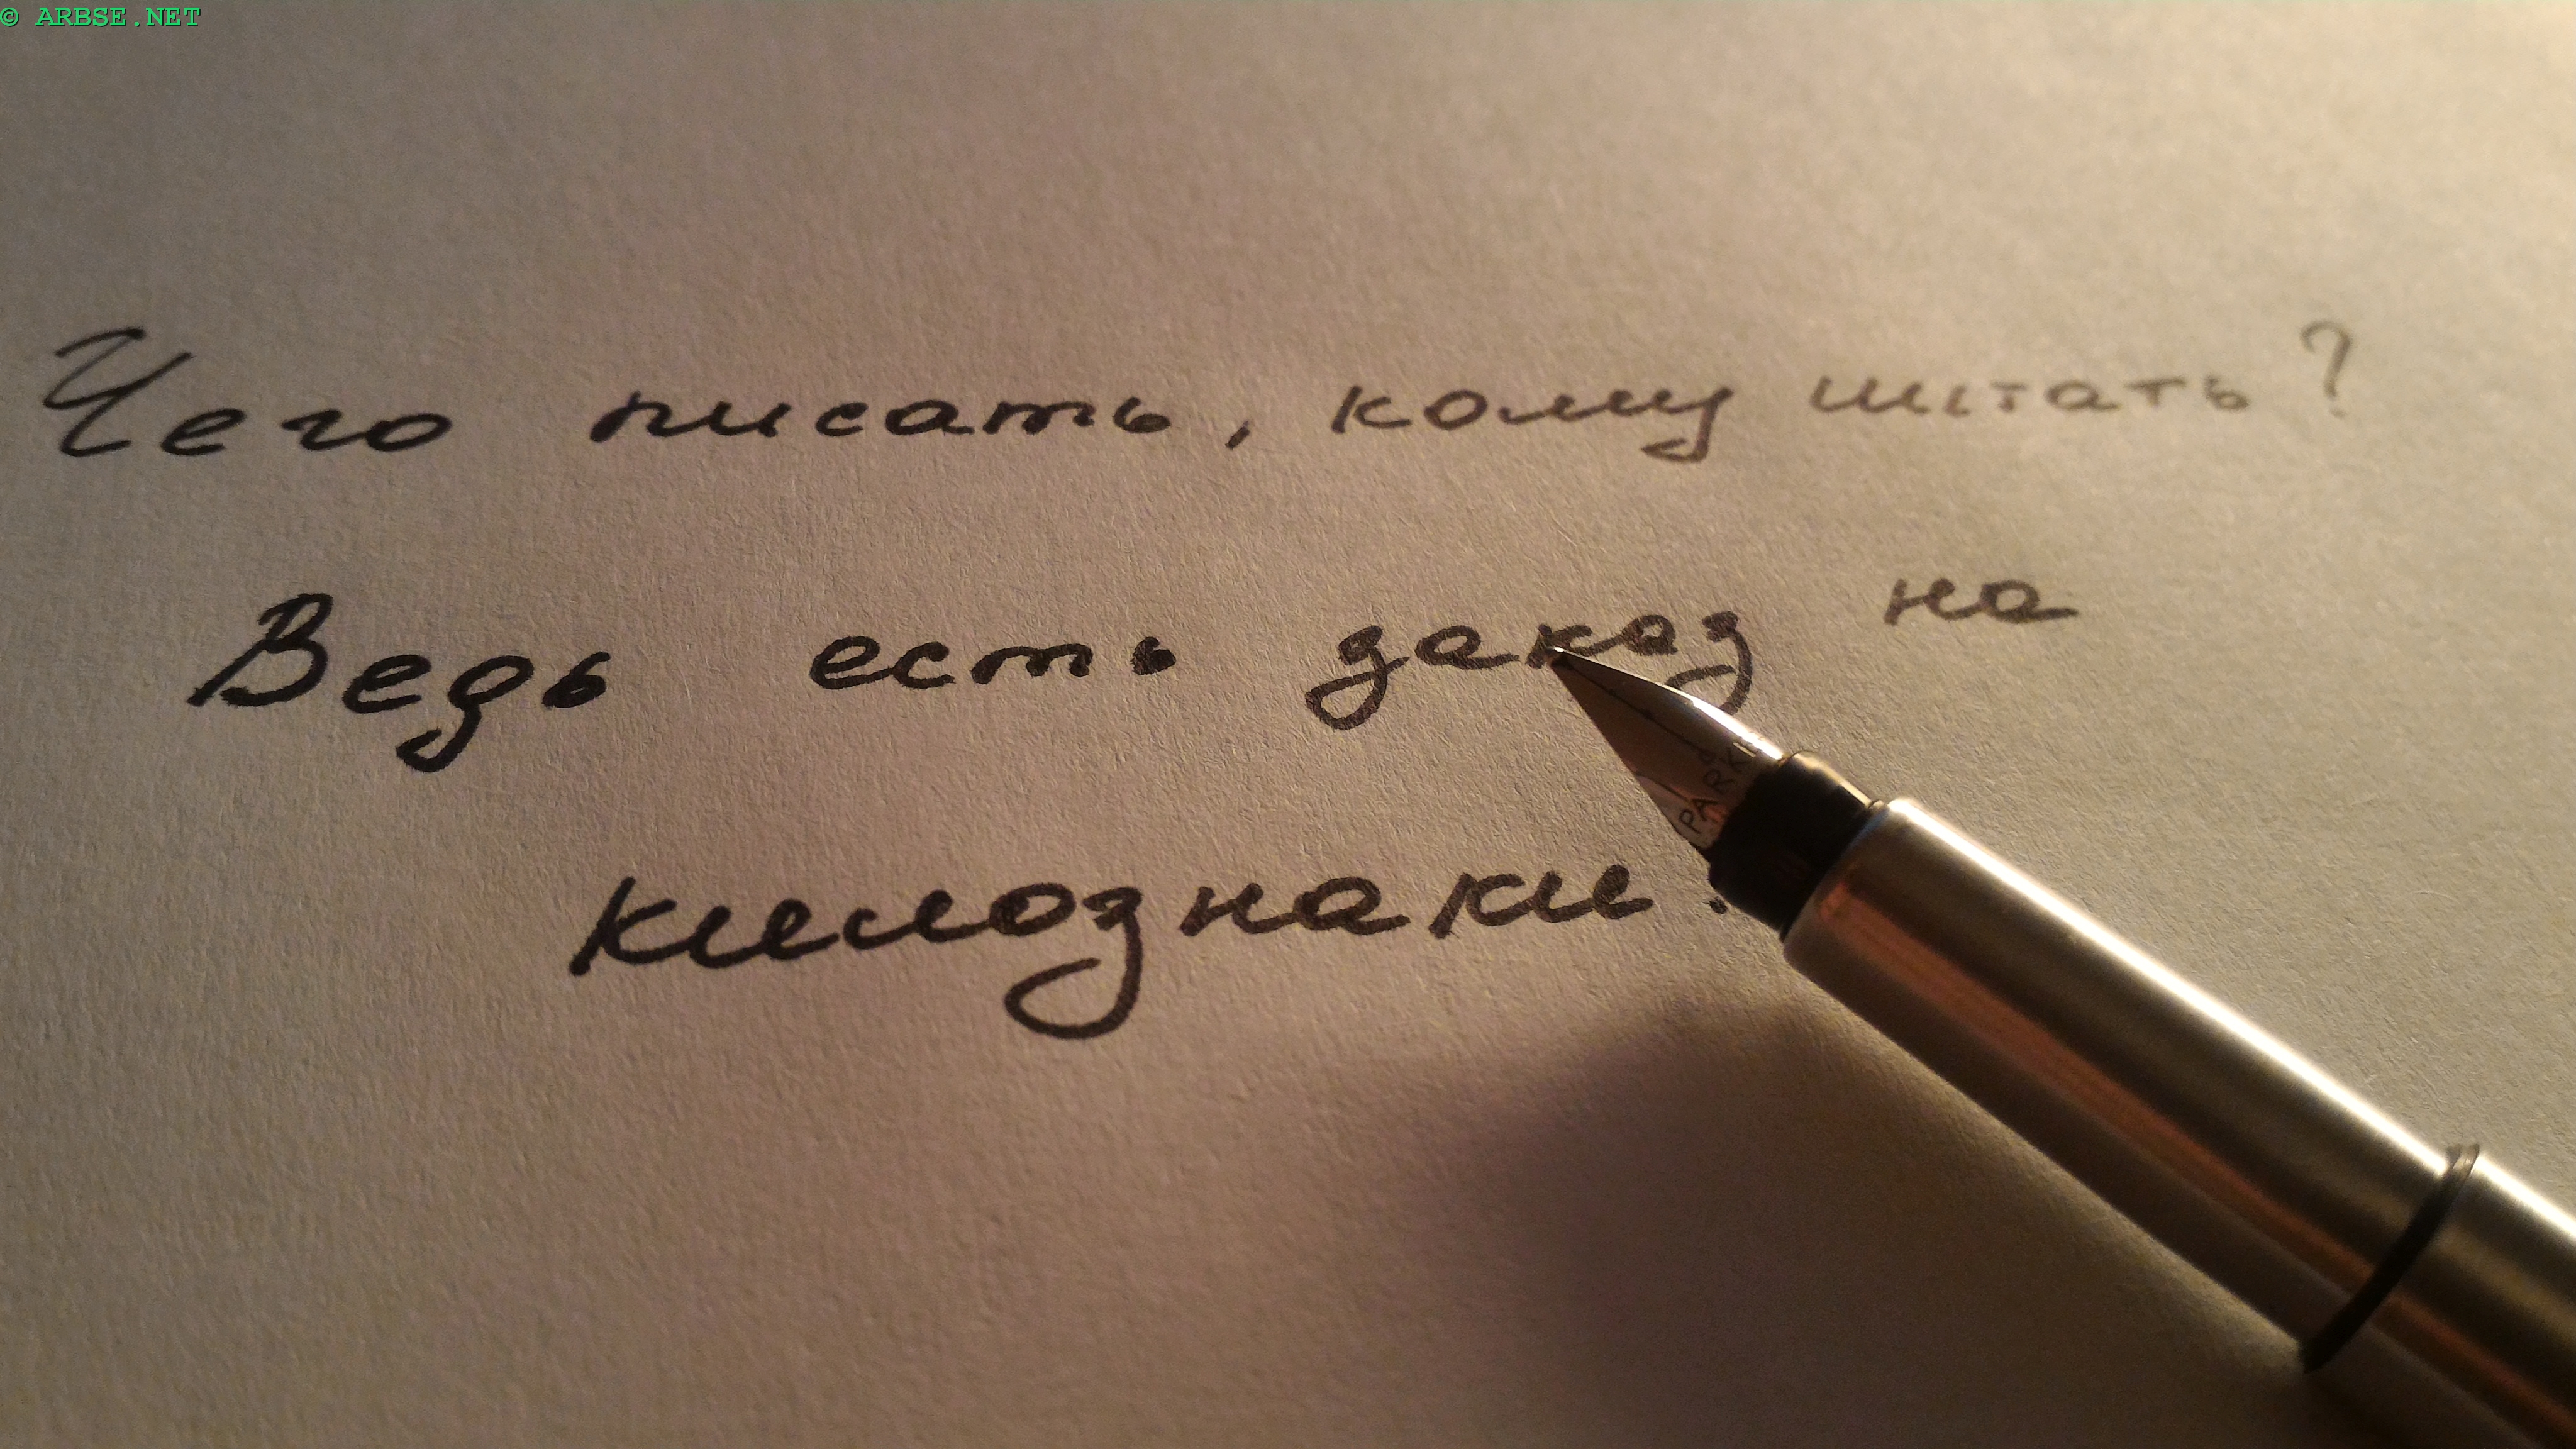 © ARBSE.NET
Чего писать, кому читать?
Ведь есть заказ на
килознаки.
PARKER